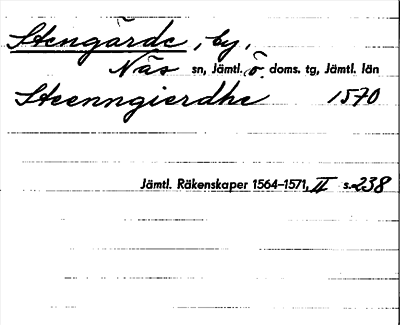 Stengärde, by,
Näs sn, Jämtl. ö. doms. tg, Jämtl. län
Steenngierdhe 1570
Jämtl. Räkenskaper 1564-1571, II s. 238